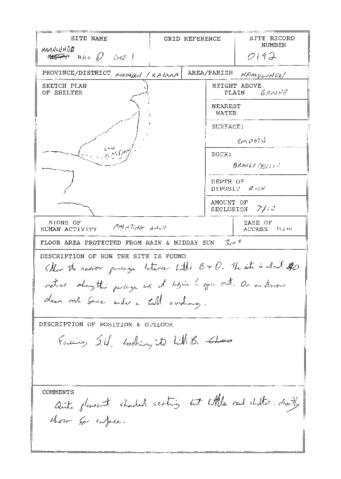 SITE NAME
GRID REFERENCE
SITE RECORD NUMBER
HILL D SITE 1
0192
PROVINCE/DISTRICT
AREA/PARISH
SKETCH PLAN OF SHELTER
HEIGHT ABOVE PLAIN GROUND
NEAREST WATER
SURFACE:
SMOOTH
ROCK:
DEPTH OF DEPOSIT ROCK
AMOUNT OF SECLUSION 7/10
SIGNS OF HUMAN ACTIVITY PAINTING ONLY
EASE OF ACCESS 10/10
FLOOR AREA PROTECTED FROM RAIN & MIDDAY SUN
DESCRIPTION OF HOW THE SITE IS FOUND
Follow the narrow passage between hills B & D. The site is about
metres along this passage as it begins to open out. On an
rock face under a tall overhang.
DESCRIPTION OF POSITION & OUTLOOK
Facing SW, looking into hill B.
COMMENTS
Quite pleasant shaded seating but little real shelter. Mostly
chosen for surface.